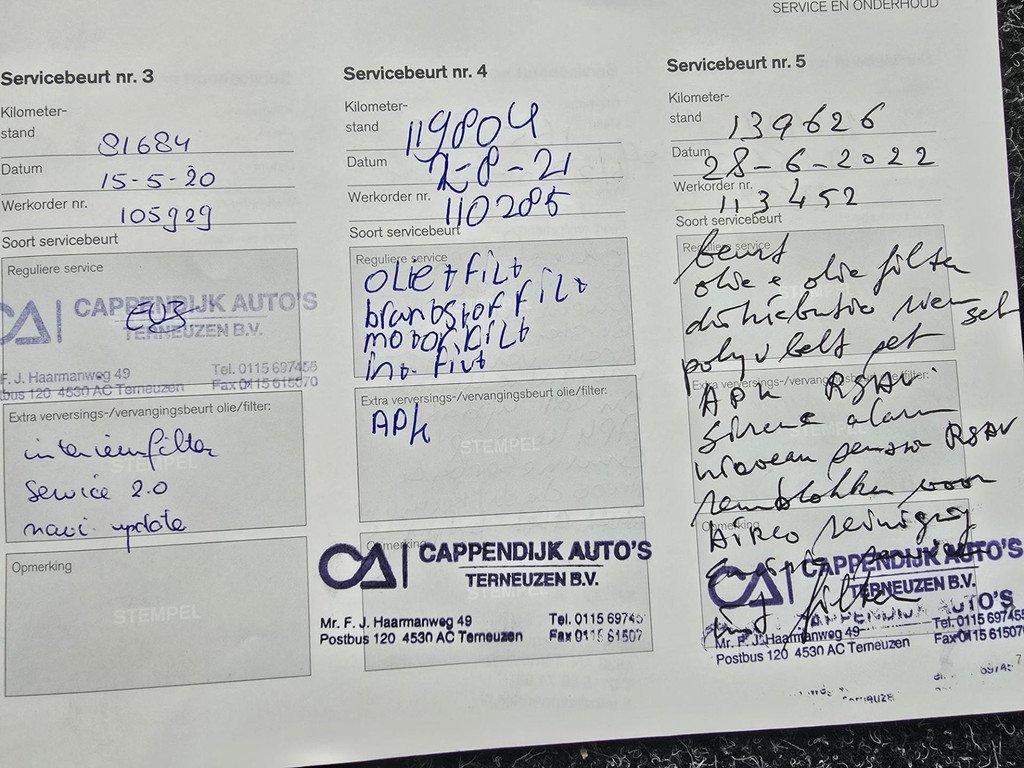 SERVICE EN ONDERHOUD
Servicebeurt nr. 3
Kilometer-
stand 81684
Datum 15-5-20
Werkorder nr. 105929
Soort servicebeurt
Reguliere service
CAPPENDIJK AUTO'S
TERNEUZEN B.V.
F. J. Haarmanweg 49 Tel. 0115 697455
tbus 120 4530 AC Terneuzen Fax 0115 615070
Extra verversings-/vervangingsbeurt olie/filter:
interieurfilter
STEMPEL
Service 2.0
navi update
Opmerking
STEMPEL
Servicebeurt nr. 4
Kilometer-
stand 119804
Datum 2-8-21
Werkorder nr. 110285
Soort servicebeurt
Reguliere service
olie + filt
brandstof filt
motor filt
int. filt
Extra verversings-/vervangingsbeurt olie/filter:
APK
STEMPEL
Opmerking
CAPPENDIJK AUTO'S
TERNEUZEN B.V.
Mr. F. J. Haarmanweg 49 Tel. 0115 6974
Postbus 120 4530 AC Terneuzen Fax 0115 61507
Servicebeurt nr. 5
Kilometer-
stand 139626
Datum 28-6-2022
Werkorder nr. 113452
Soort servicebeurt
Reguliere service
beurt
olie + olie filter
distributie riem set
poly v belt set
Extra verversings-/vervangingsbeurt olie/filter:
APK RSAV
Sirene alarm
niveau sensor RSAV
remblokken voor
Opmerking
Airco reiniging
filter
CAPPENDIJK AUTO'S
TERNEUZEN B.V.
Mr. F. J. Haarmanweg 49 Tel. 0115 697455
Postbus 120 4530 AC Terneuzen Fax 0115 615070
7